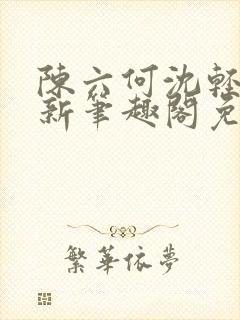 陳六何沈輕
新筆趣閣免
繁華依夢